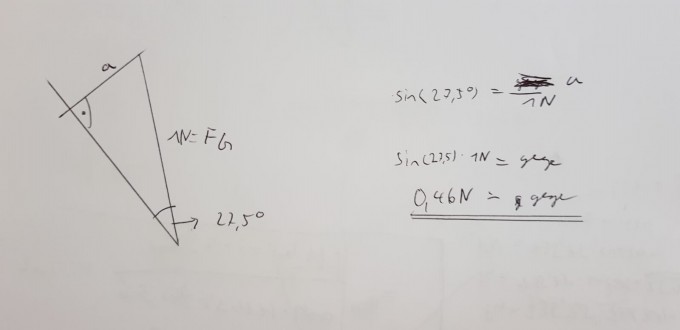 a
1N = FG
27,5°
sin(27,5°) = a / 1N
sin(27,5) · 1N = gege
0,46N = gege